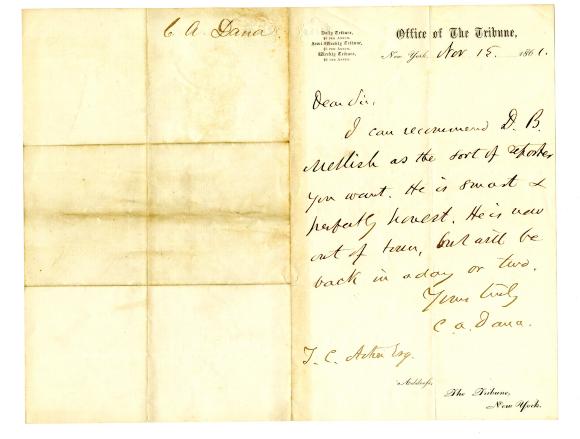 C A. Dana
Daily Tribune,
$6 per Annum.
Semi-Weekly Tribune,
$3 per Annum.
Weekly Tribune,
$2 per Annum.
Office of The Tribune,
New York, Nov 15. 1861.
Dear Sir,
I can recommend D. B.
Mellish as the sort of reporter
you want. He is smart &
perfectly honest. He is now
out of town, but will be
back in a day or two.
Yours truly
C. A. Dana.
T. C. Esq.
Address,
The Tribune,
New York.